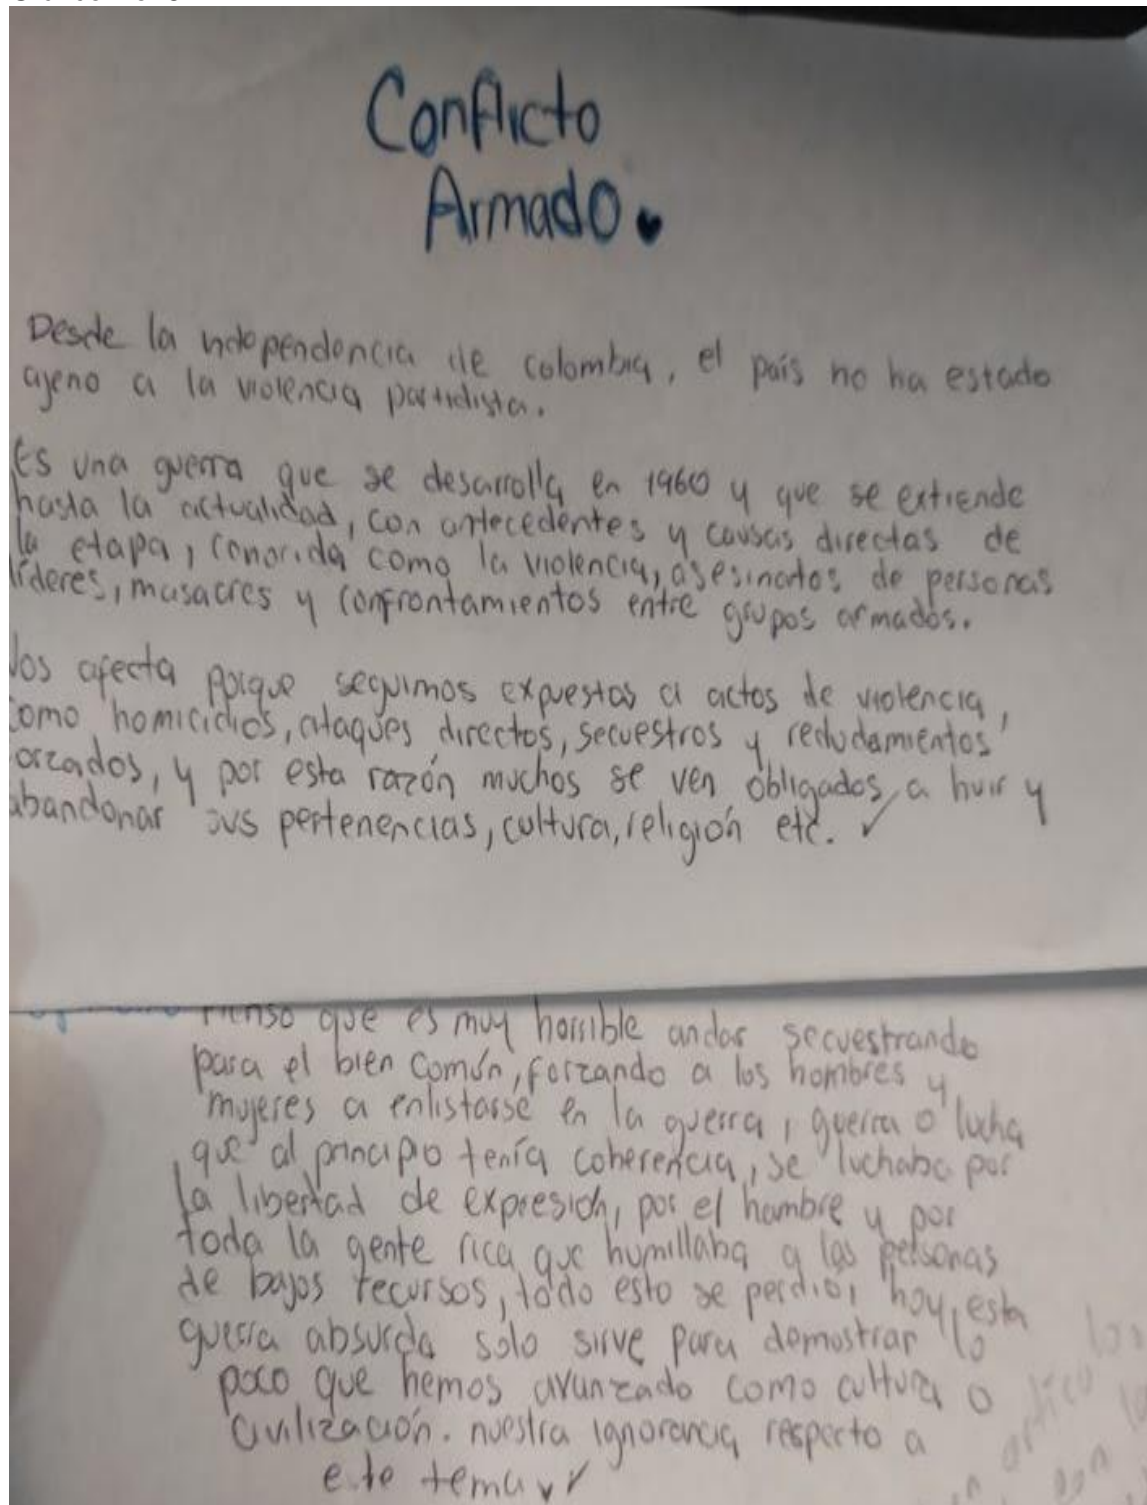 Conflicto
Armado
Desde la independencia de colombia, el país no ha estado
ajeno a la violencia partidista.
Es una guerra que se desarrolla en 1960 y que se extiende
hasta la actualidad, con antecedentes y causas directas de
la etapa, conocida como la violencia, asesinatos de personas
líderes, masacres y confrontamientos entre grupos armados.
Nos afecta porque seguimos expuestos a actos de violencia,
como homicidios, ataques directos, secuestros y recludamientos
orzados, y por esta razón muchos se ven obligados, a huir y
abandonar sus pertenencias, cultura, religión etc.
Pienso que es muy horrible andar secuestrando
para el bien común, forzando a los hombres y
mujeres a enlistarse en la guerra, guerra o lucha
que al principio tenía coherencia, se luchaba por
la libertad de expresión, por el hambre y por
toda la gente rica que humillaba a las personas
de bajos recursos, todo esto se perdió, hoy, esta
guerra absurda solo sirve para demostrar lo
poco que hemos avanzado como cultura o
civilización. nuestra ignorancia respecto a
este tema